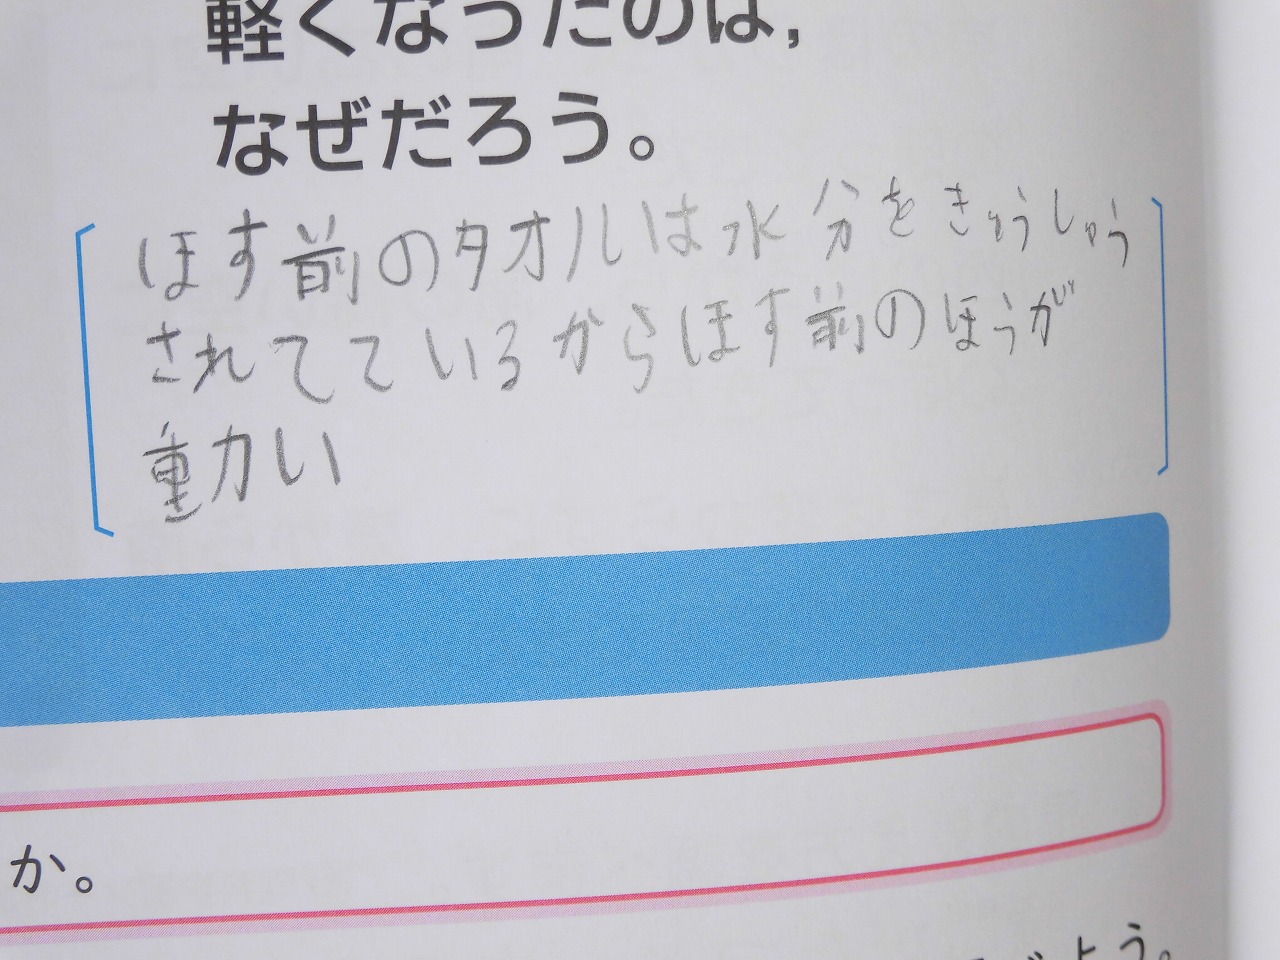 軽くなったのは,
なぜだろう。
ほす前のタオルは水分をきゅうしゅう
されてているからほす前のほうが
重カい
か。
よう。